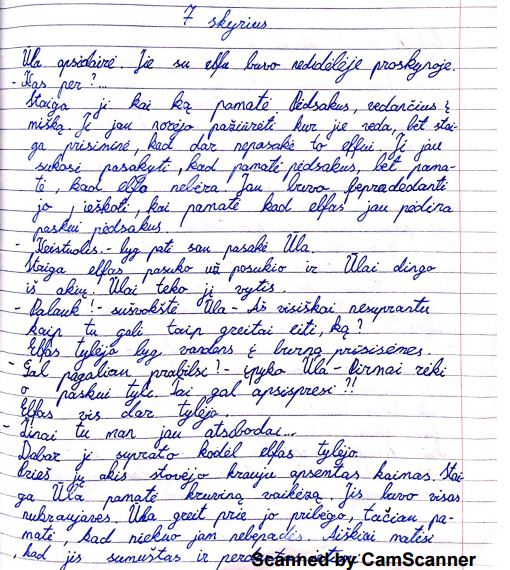 7 skyrius
Ula apsidairė. Jie su elfu buvo nedidelėje proskynoje.
- Kas per?...
Staiga ji kai ką pamatė. Pėdsakus, vedančius į
mišką. Ji jau norėjo pažiūrėti kur jie veda, bet stai-
ga prisiminė, kad dar nepasakė to elfui. Ji jau
sukosi pasakyti, kad pamatė pėdsakus, bet pama-
tė, kad elfo nebėra. Jau buvo bepradedanti
jo ieškoti, kai pamatė kad elfas jau pėdina
paskui pėdsakus
- Keistuolis. - lyg pati sau pasakė Ula.
Staiga elfas pasuko už posūkio ir Ulai dingo
iš akių. Ulai teko jį vytis.
- Palauk! - sušnokštė Ula - Aš visiškai nesuprantu
kaip tu gali taip greitai eiti, ką?
Elfas tylėjo lyg vandens į burną prisisėmęs.
- Gal pagaliau prabilsi? - įpyko Ula -
o paskui tyli. Tai gal apsispręsi?!
Elfas vis dar tylėjo.
- Žinai tu man jau atsibodai...
Dabar ji suprato kodėl elfas tylėjo.
Prieš jų akis stovėjo krauju apsemtas kaimas. Stai-
ga Ula pamatė kruviną vaikėzą. Jis buvo visas
nukraujavęs. Ula greit prie jo pribėgo, tačiau pa-
matė, kad niekuo jam nebepadės. Aiškiai matėsi
, kad jis sumuštas ir
Scanned by CamScanner